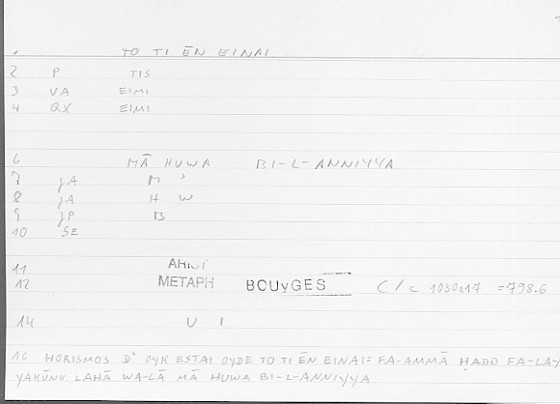 1 TO TI ĒN EINAI
2 P TIS
3 VA EIMI
4 QX EIMI
6 MĀ HUWA BI-L-ANNIYYA
7 jA M '
8 jA H W
9 jP B
10 SE
11
12 METAPH BOUyGES C/c 1030a17 =798.6
14 U I
16 HORISMOS D' OYK ESTAI OYDE TO TI ĒN EINAI= FA-AMMĀ ḤADD FA-LAY
YAKŪNU LAHĀ WA-LĀ MĀ HUWA BI-L-ANNIYYA